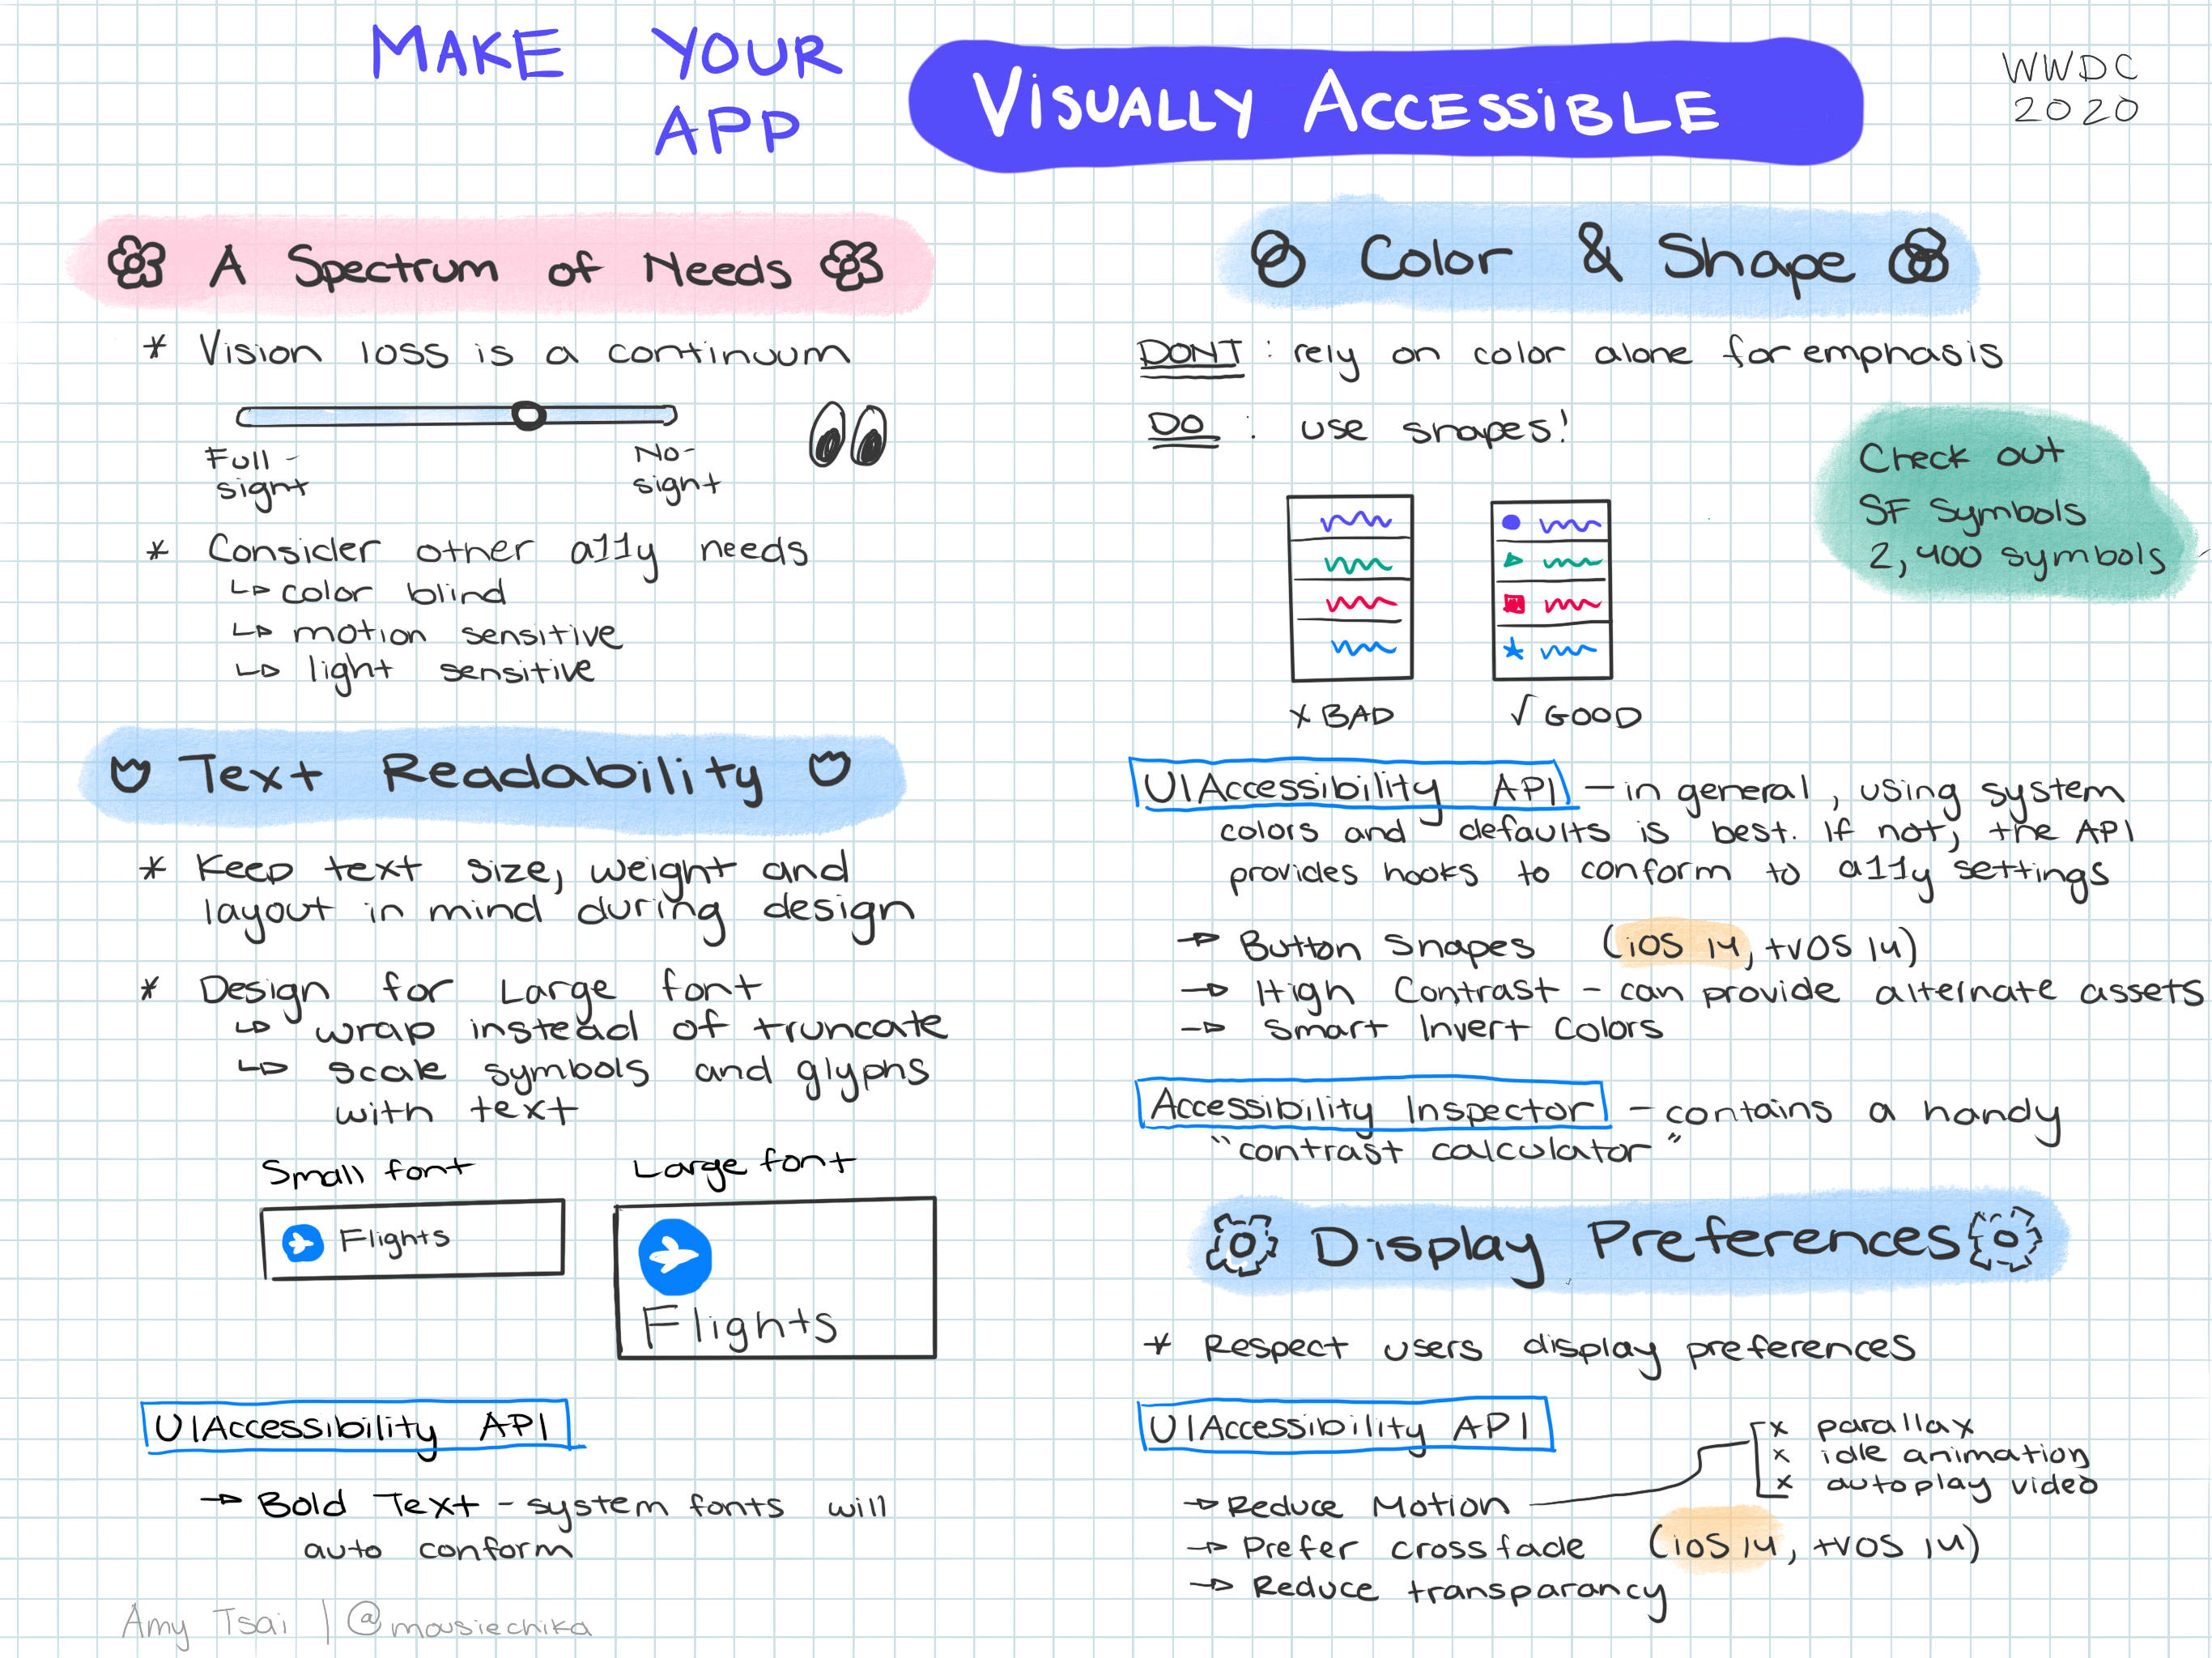 MAKE YOUR
APP
VISUALLY ACCESSIBLE
WWDC
2020
A Spectrum of Needs
* Vision loss is a continuum
Full-
sight
No-
sight
* Consider other a11y needs
color blind
motion sensitive
light sensitive
Text Readability
* Keep text size, weight and
layout in mind during design
* Design for Large font
wrap instead of truncate
scale symbols and glyphs
with text
Small font
Flights
Large font
Flights
UIAccessibility API
→ Bold Text - system fonts will
auto conform
Amy Tsai | @mousiechika
Color & Shape
DONT: rely on color alone for emphasis
DO: use shapes!
Check out
SF Symbols
2,400 symbols
x BAD
√ GOOD
UIAccessibility API - in general, using system
colors and defaults is best. If not, the API
provides hooks to conform to a11y settings
→ Button Shapes (iOS 14, tvOS 14)
→ High Contrast - can provide alternate assets
→ Smart Invert Colors
Accessibility Inspector - contains a handy
"contrast calculator"
Display Preferences
* Respect users display preferences
UIAccessibility API
→ Reduce Motion
x parallax
x idle animation
x autoplay video
→ Prefer crossfade (iOS 14, tvOS 14)
→ Reduce transparancy